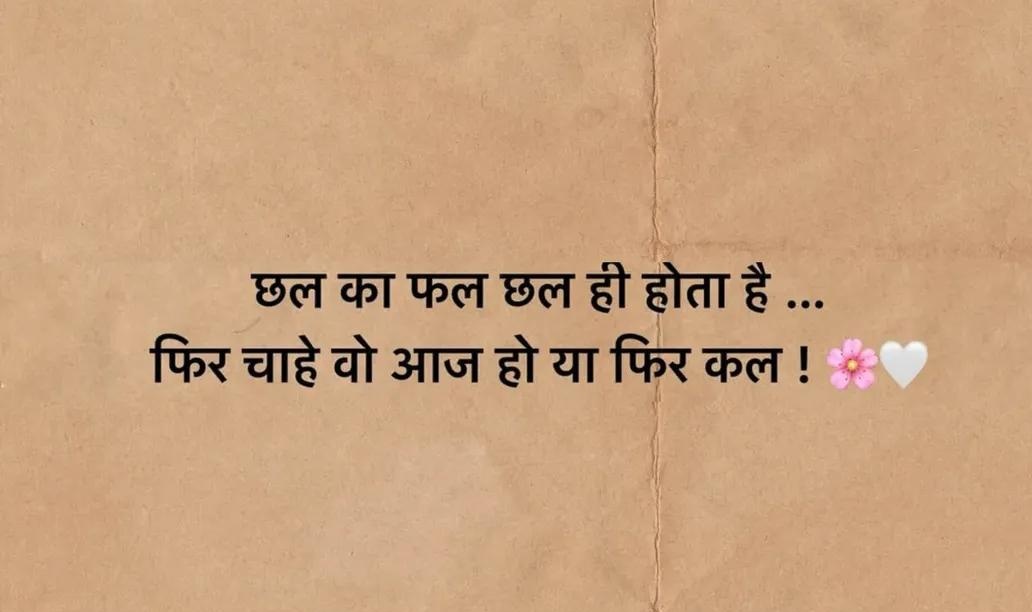 छल का फल छल ही होता है ...
फिर चाहे वो आज हो या फिर कल ! 🌸🤍